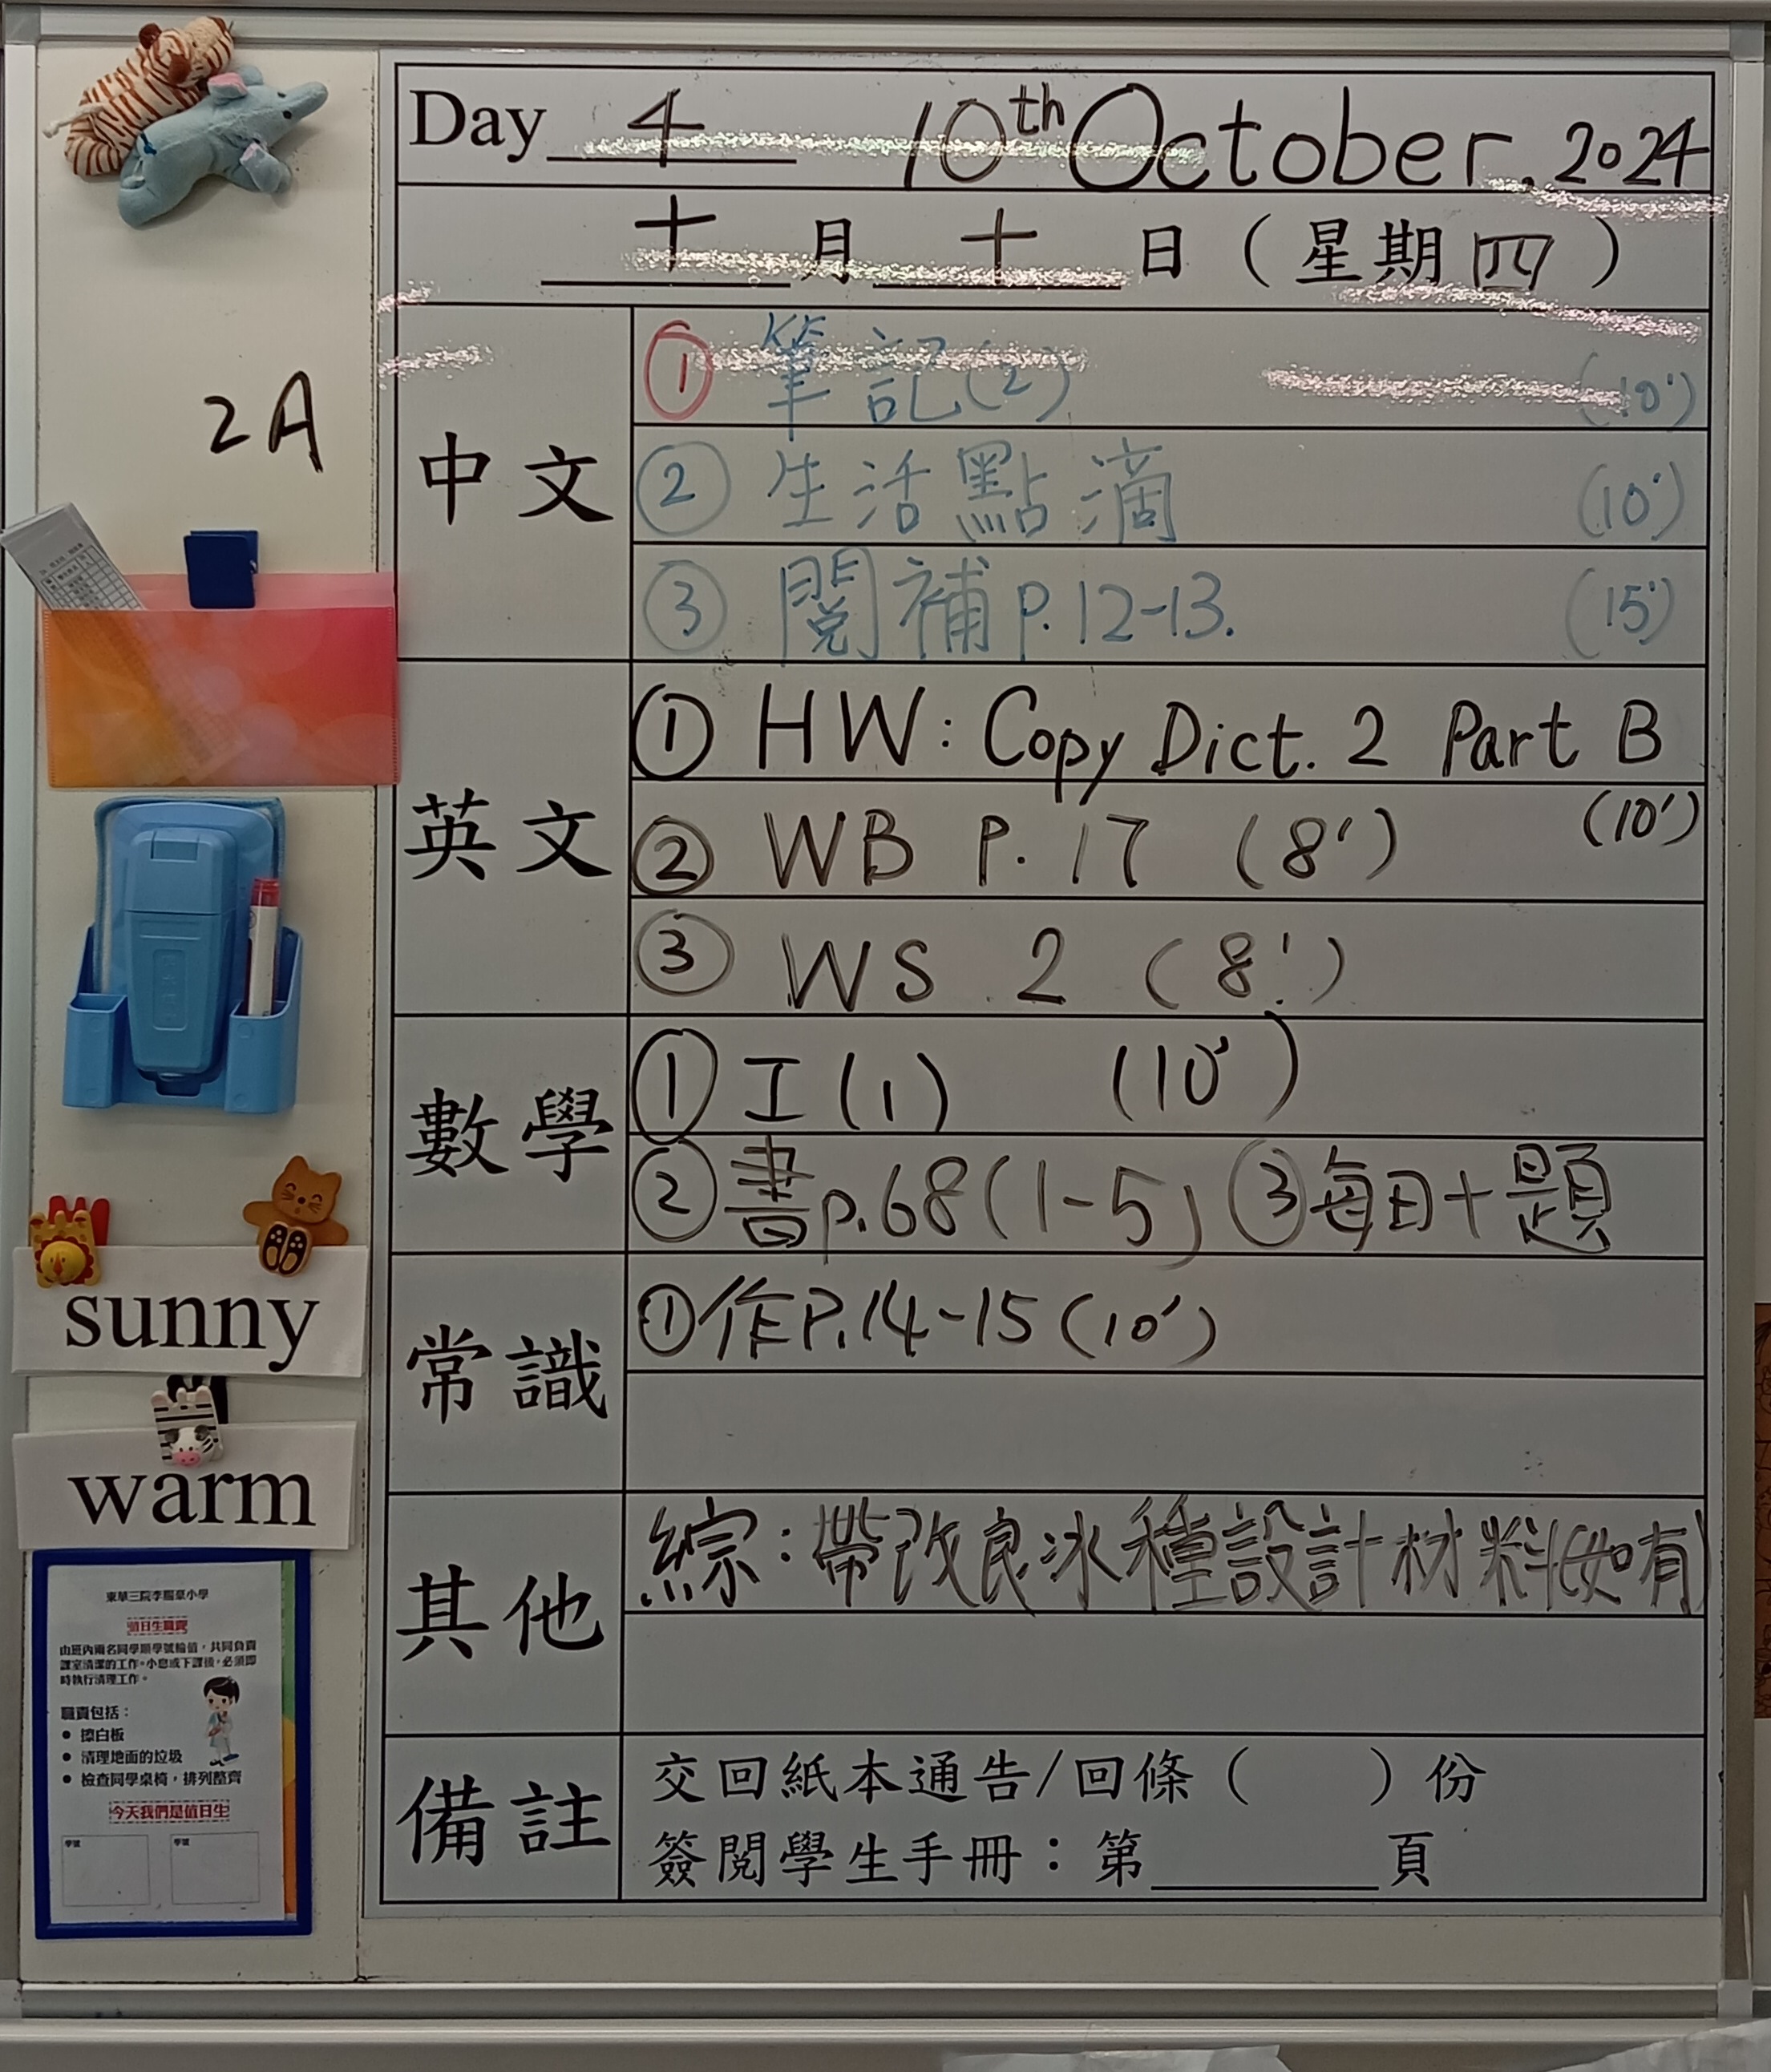 Day 4 10th October. 2024
十 月 十 日（星期四）
2A
中文
① 筆記(2) (10')
② 生活點滴 (10')
③ 閱補 P.12-13. (15')
英文
① HW: Copy Dict. 2 Part B
(10')
② WB P. 17 (8')
③ WS 2 (8')
數學
① 工(1) (10')
② 書p.68(1-5) ③每日十題
常識
①作P.14-15(10')
其他
綜:帶改良冰種設計材料(如有)
備註
交回紙本通告/回條（ ）份
簽閱學生手冊：第 頁
sunny
warm
東華三院李賜豪小學
值日生職責
由班內兩名同學順學號輪值，共同負責
課室清潔的工作。小息或下課後，必須即
時執行清理工作。
職責包括：
● 擦白板
● 清理地面的垃圾
● 檢查同學桌椅，排列整齊
今天我們是值日生
學號 學號